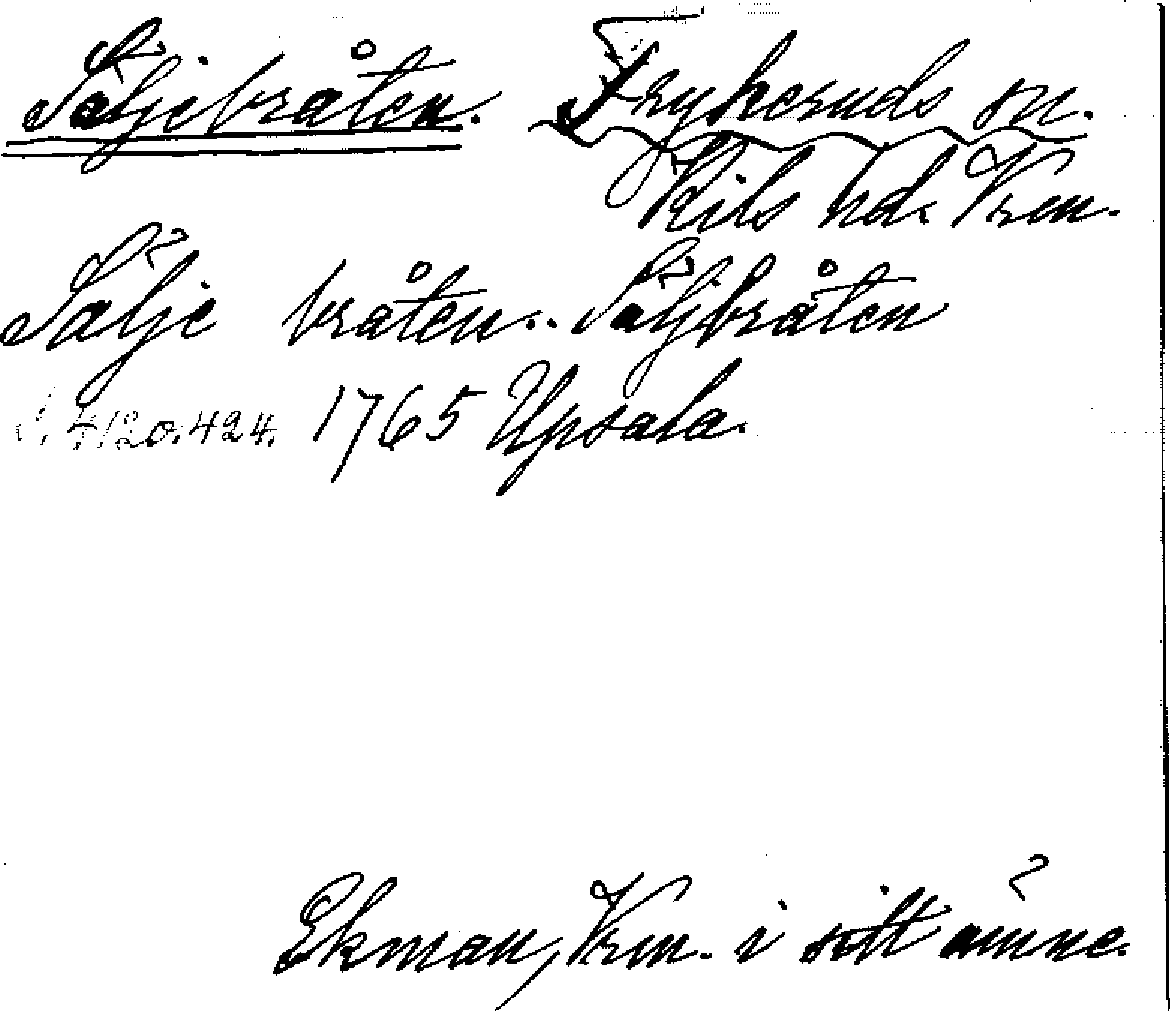 Säljebråten. Frykeruds sn.
Kils hd. Vrm.
Sälje bråten.. Säljbråten
S. 4120.424. 1765 Upsala.
Ekman, Vrm. i sitt ämne.